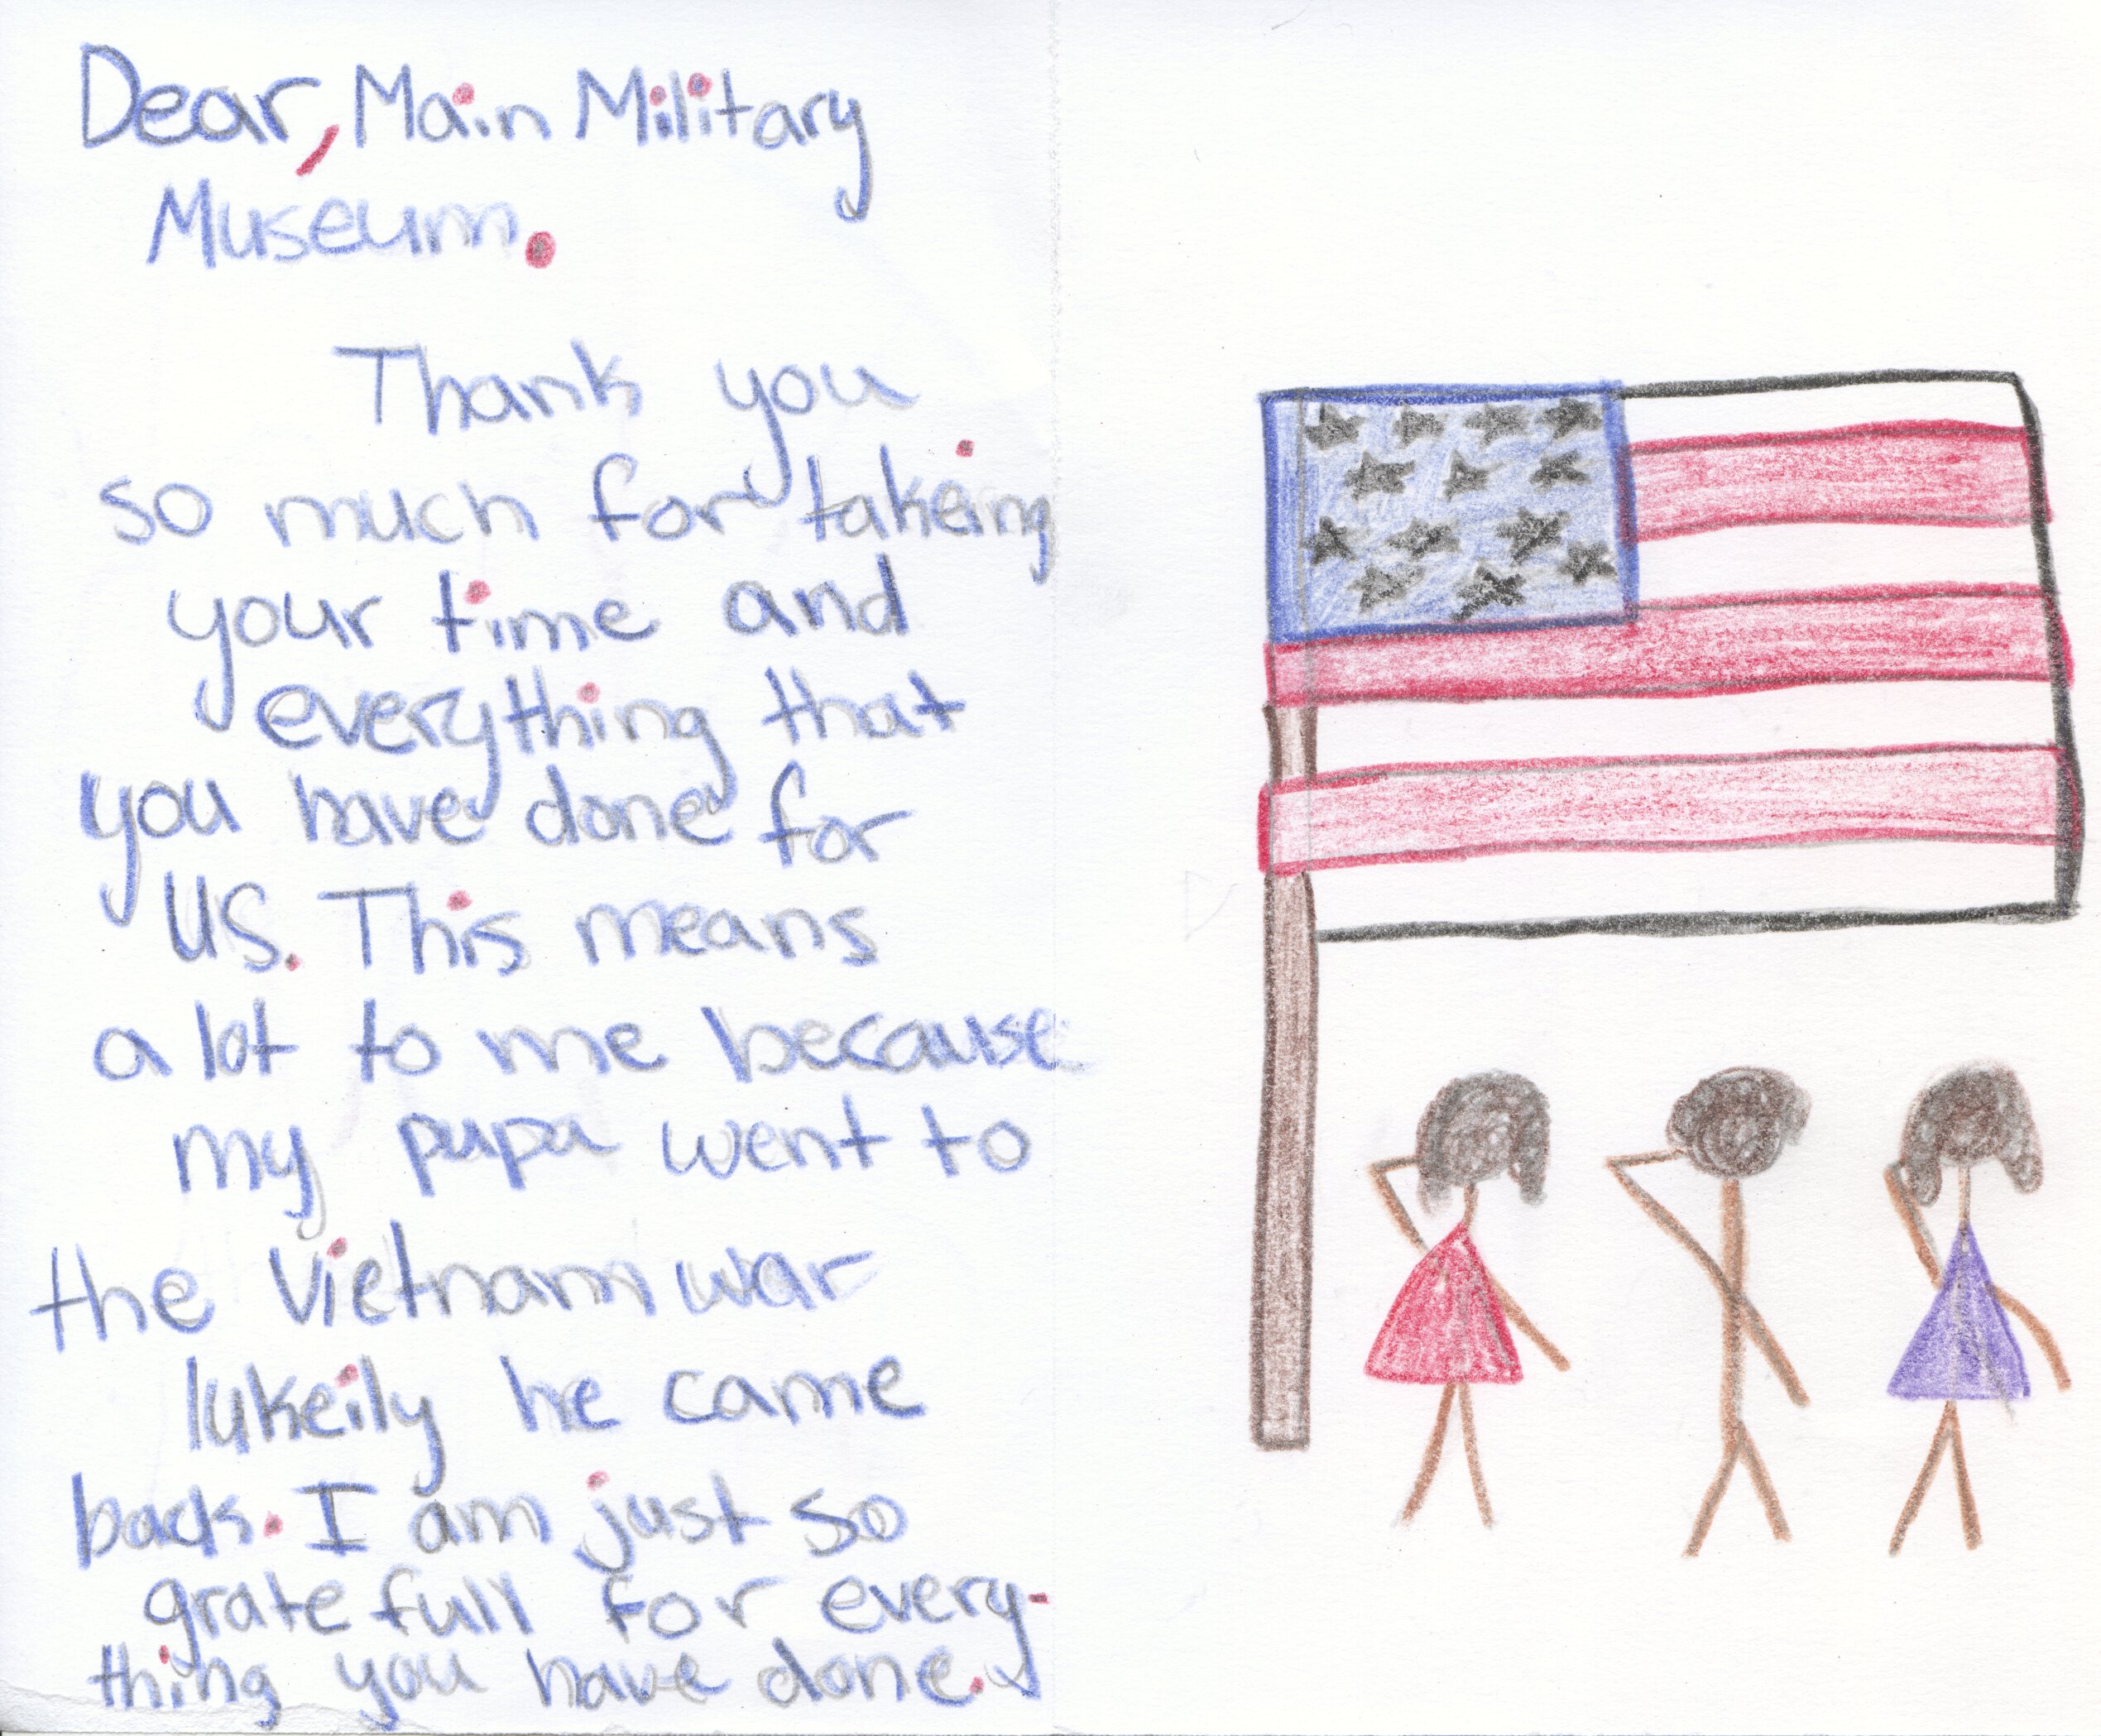 Dear, Main Military
Museum.
Thank you
so much for takeing
your time and
everything that
you have done for
us. This means
a lot to me because
my pupa went to
the Vietnam war
lukeily he came
back. I am just so
gratefull for every-
thing you have done.